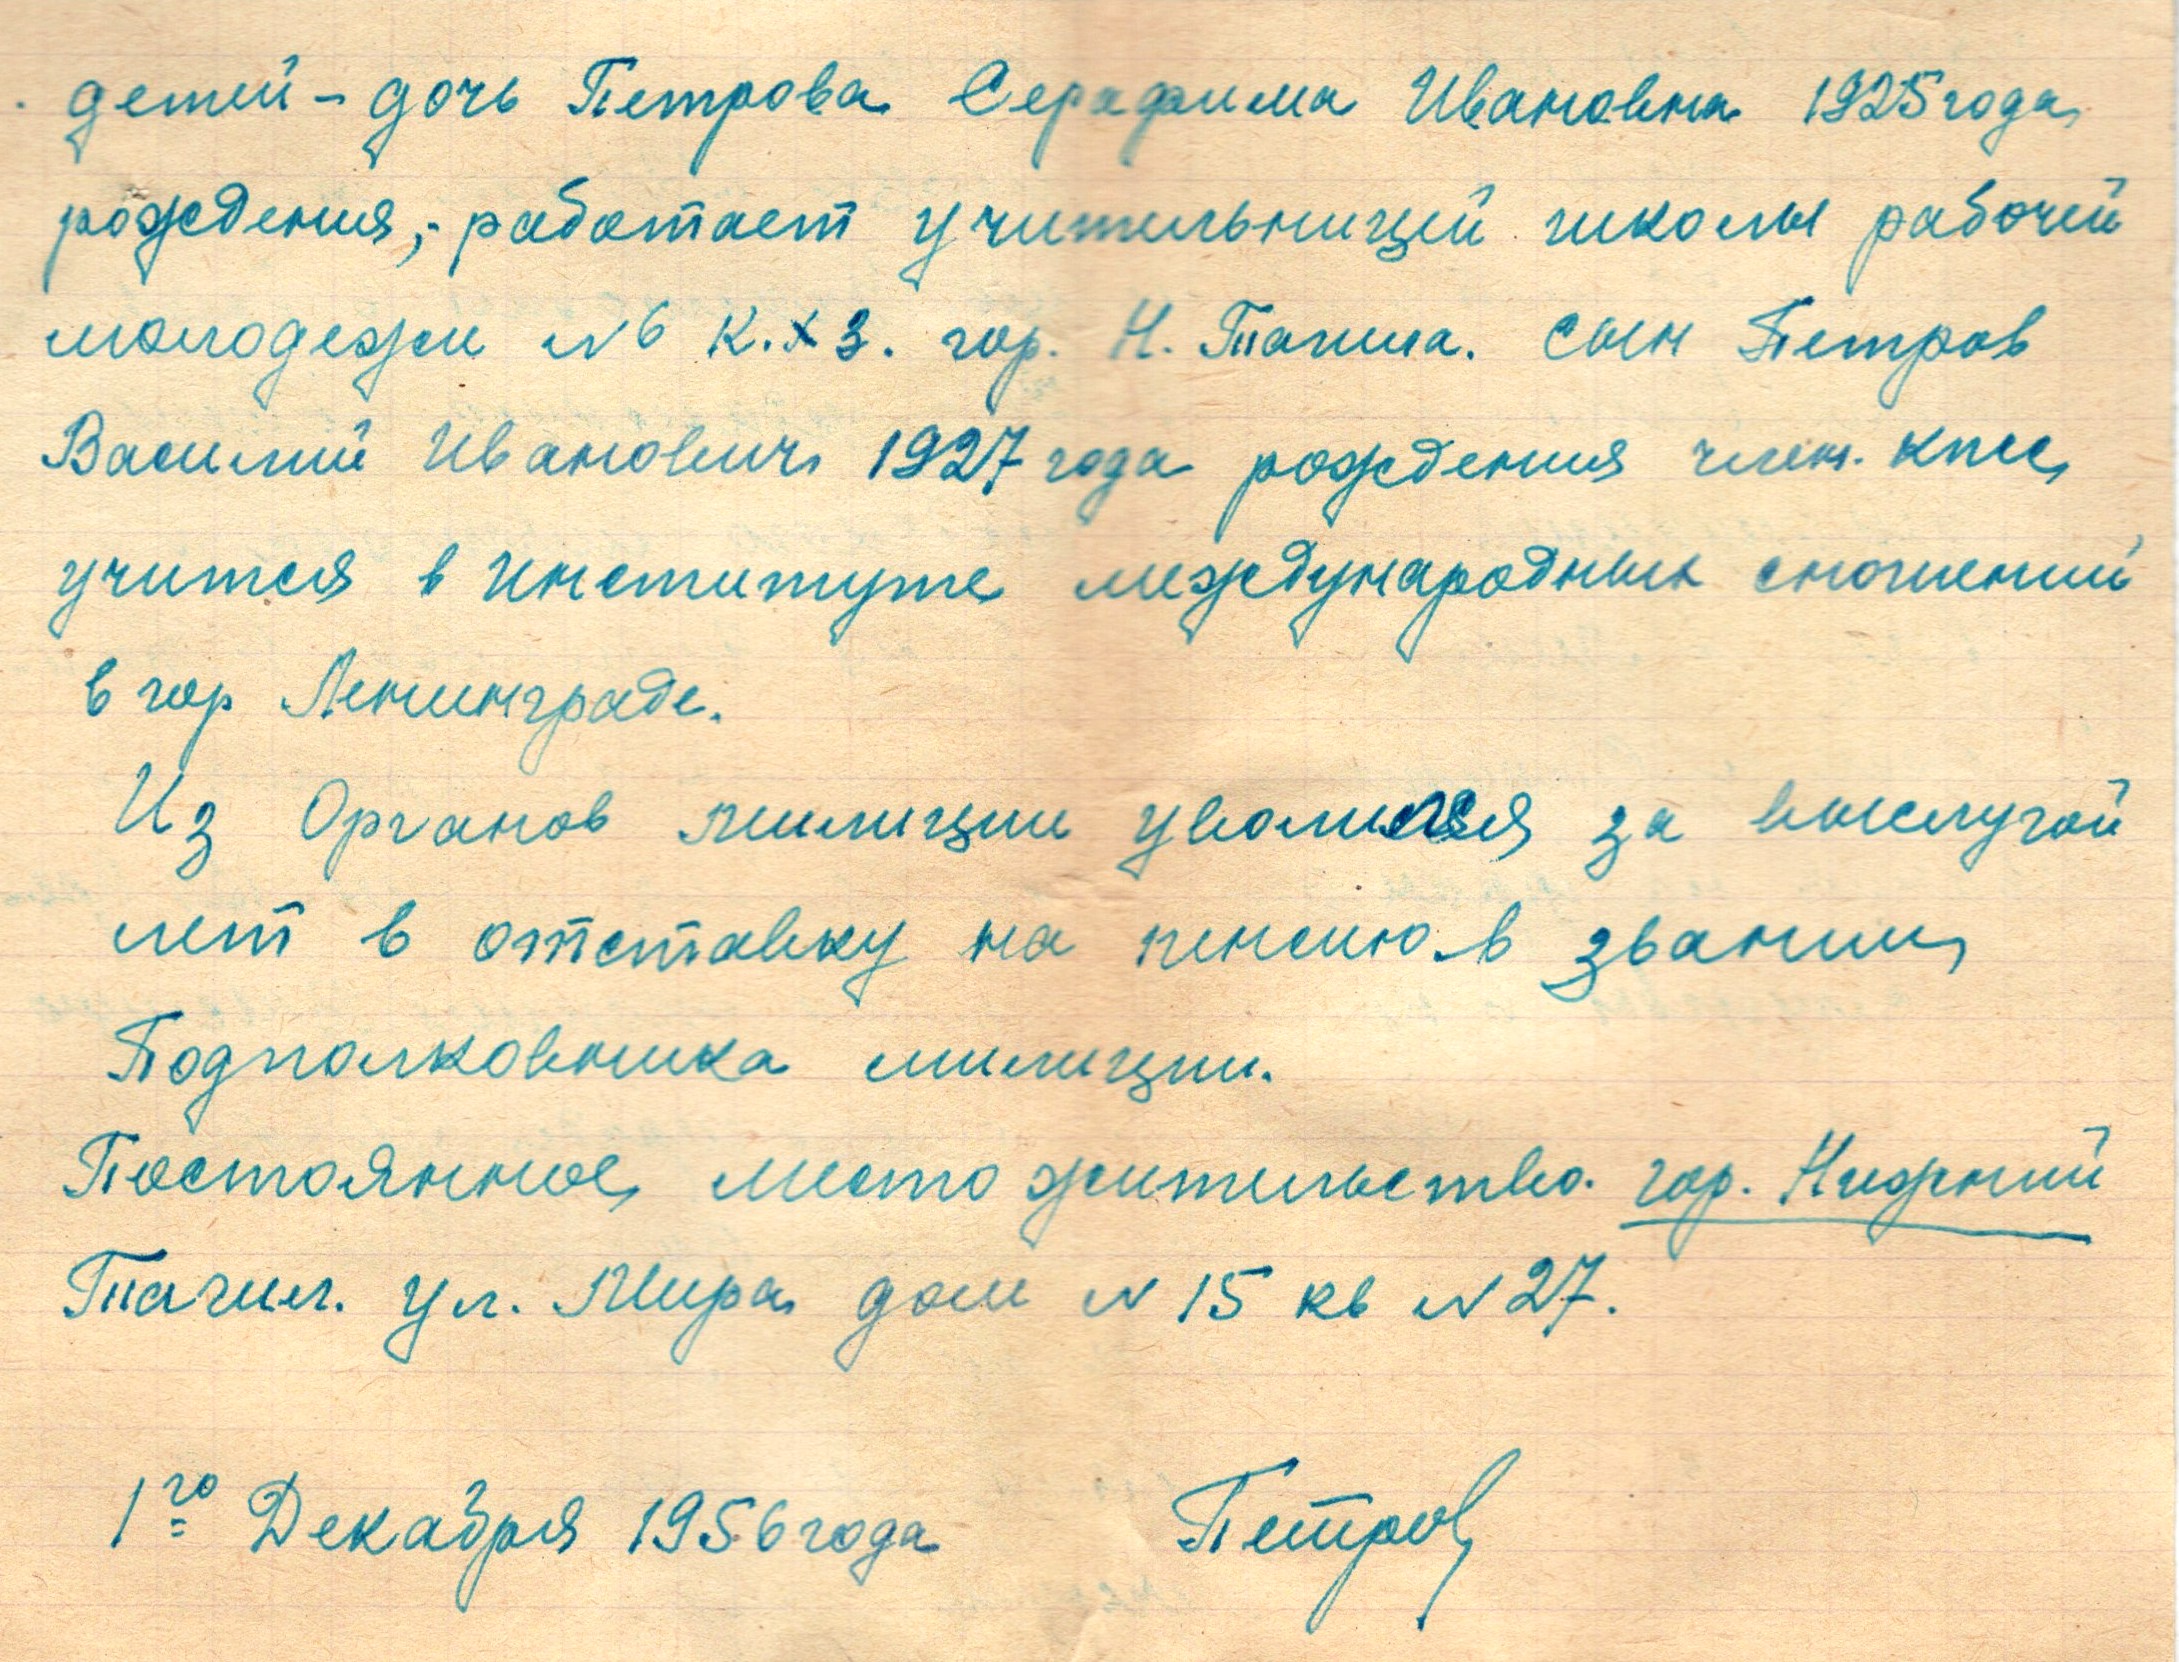 детей - дочь Петрова Серафима Ивановна 1925 года
рождения, - работает учительницей школы рабочей
молодежи N6 К.ХЗ. гор. Н. Тагила. сын Петров
Василий Иванович 1927 года рождения член. КПСС,
учится в Институте международных сношений
в гор Ленинграде.
Из Органов милиции уволился за выслугой
лет в отставку на пенсию в звании
Подполковника милиции.
Постоянное место жительство. гор. Нижний
Тагил. ул. Мира дом N 15 кв N 27.
1го Декабря 1956 года Петров